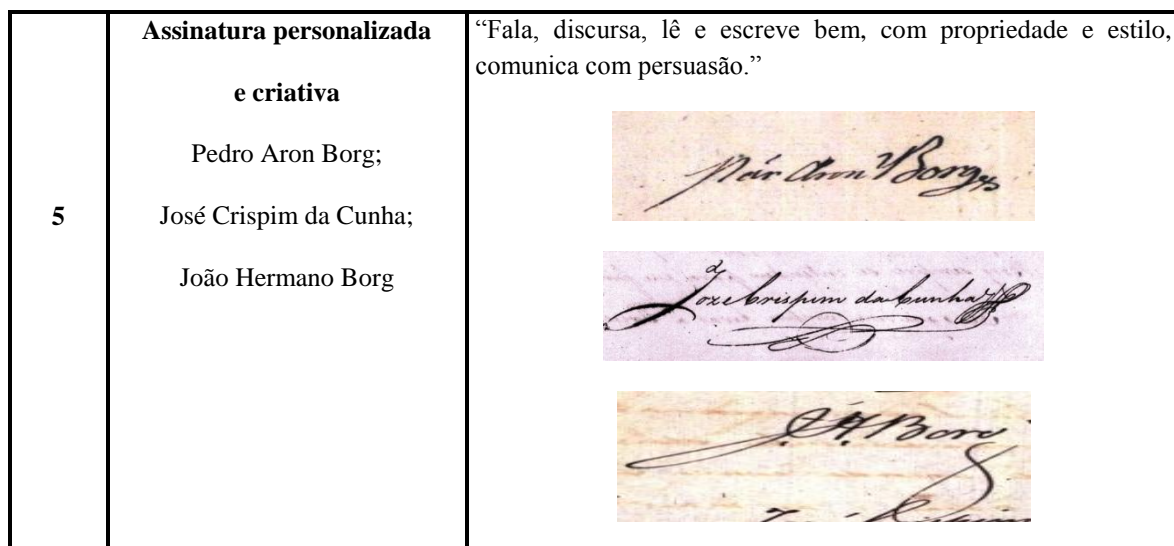 5
Assinatura personalizada
e criativa
Pedro Aron Borg;
José Crispim da Cunha;
João Hermano Borg
“Fala, discursa, lê e escreve bem, com propriedade e estilo,
comunica com persuasão.”
Pér Aron Borg
Joze Crispim da Cunha
J. H. Borg